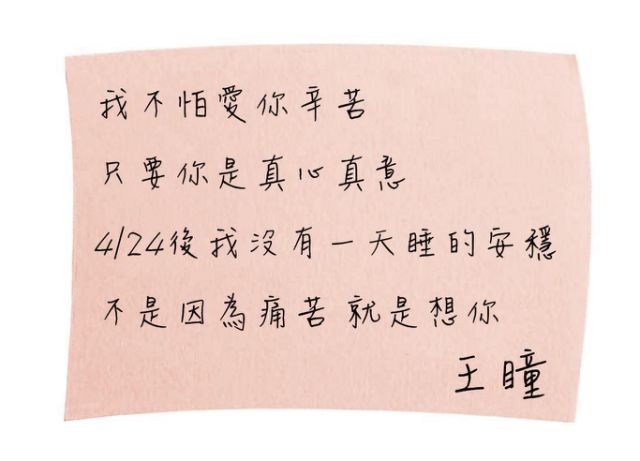 我不怕愛你辛苦
只要你是真心真意
4/24後我沒有一天睡的安穩
不是因為痛苦就是想你
王瞳